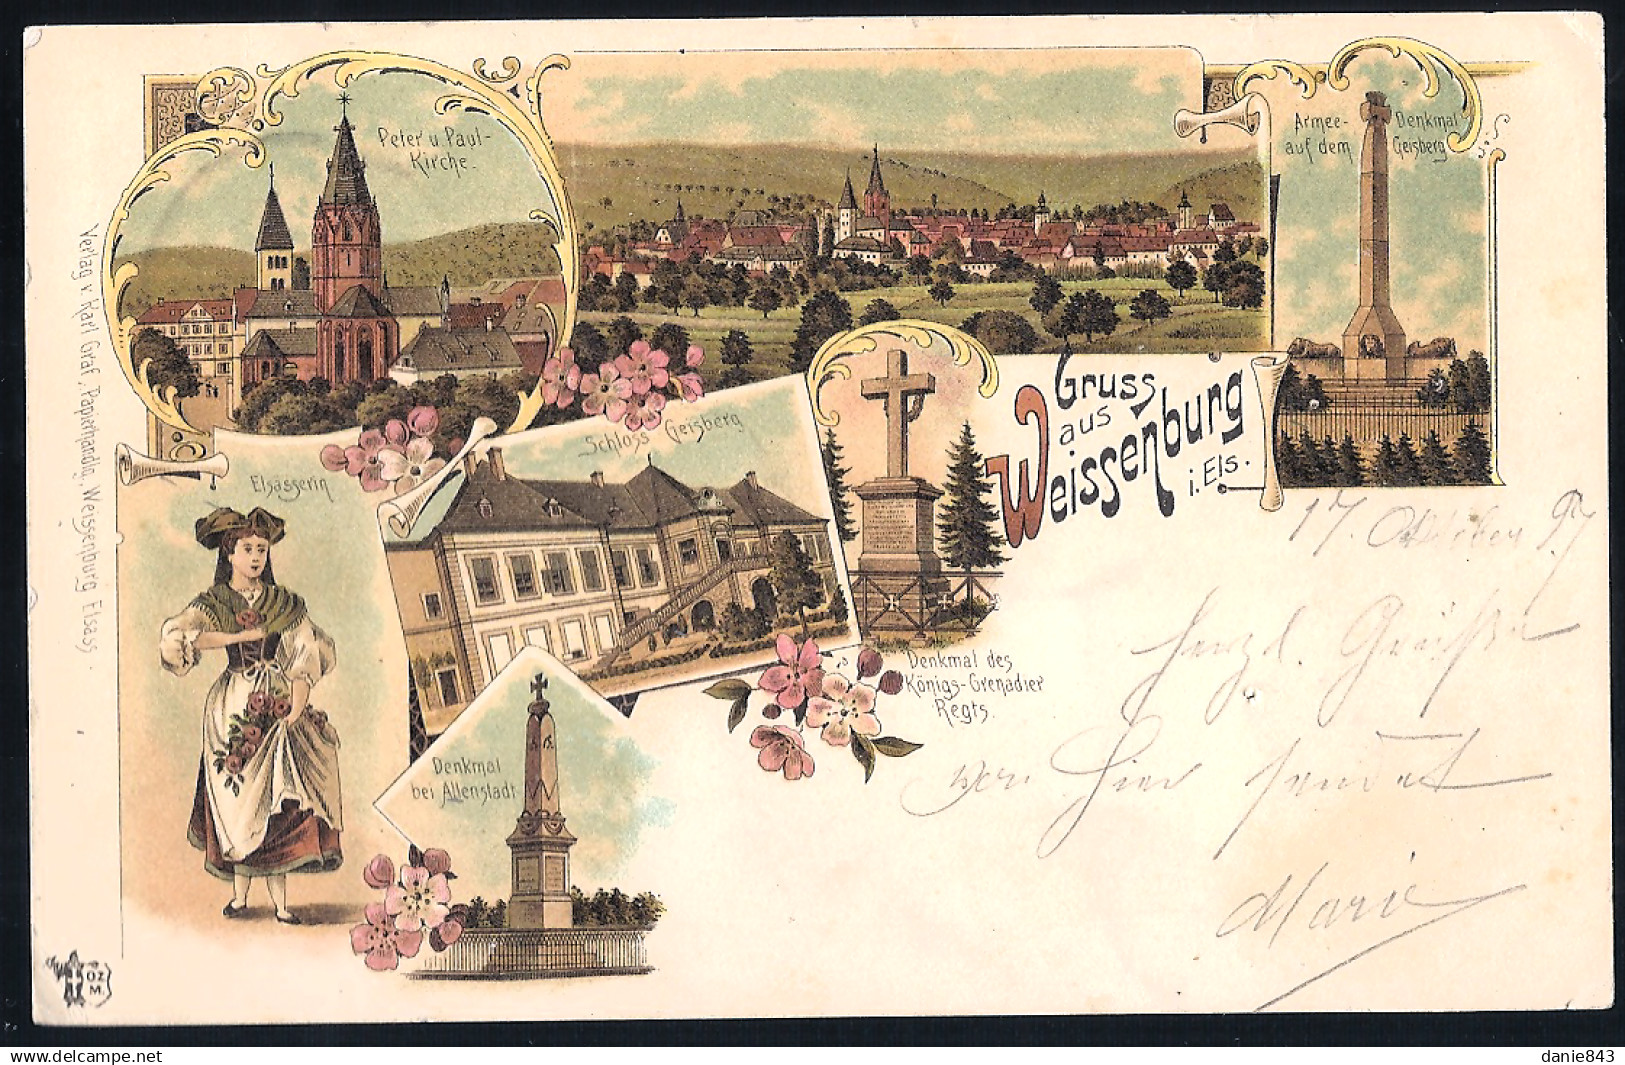 Peter u. Paul-
Kirche.
Armee- Denkmal
auf dem Geisberg
Gruss
aus
Weissenburg
i. Els.
Schloss Geisberg
Elsässerin
Denkmal des
Königs-Grenadier
Regts.
Denkmal
bei Altenstadt
Verlag v. Karl Graf, Papierhandlg, Weissenburg, Elsass.
OZ
M.
17. Oktober 97
Herzl. Grüße
von hier sendet
Marie
danie843